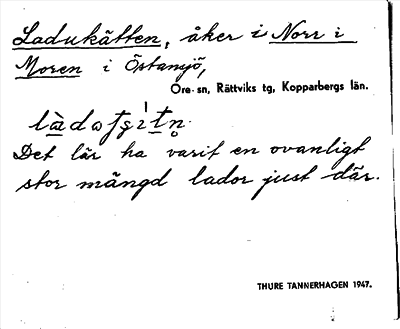 Ladukätten, åker i Norr i
Moren i Östansjö,
Ore sn, Rättviks tg, Kopparbergs län.
Det lär ha varit en ovanligt
stor mängd lador just där.
THURE TANNERHAGEN 1947.